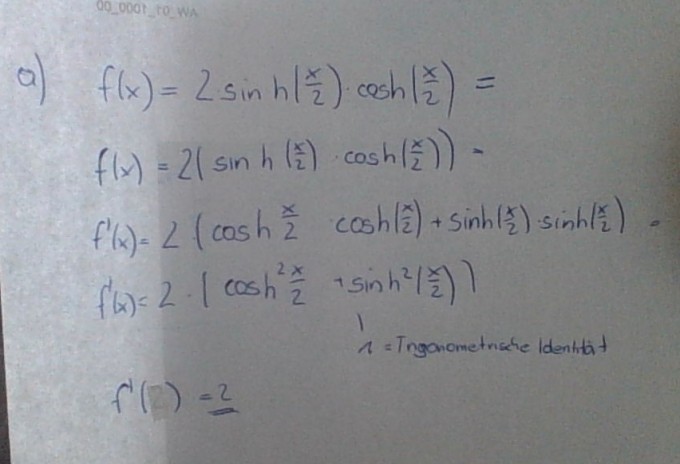 00_0001_10_WA
a) f(x) = 2 sinh(x/2) · cosh(x/2) =
f(x) = 2(sinh(x/2) · cosh(x/2)) =
f'(x) = 2 (cosh x/2 cosh(x/2) + sinh(x/2) · sinh(x/2)) =
f'(x) = 2 · (cosh² x/2 + sinh²(x/2))
1 = Trigonometrische Identität
f'( ) = 2